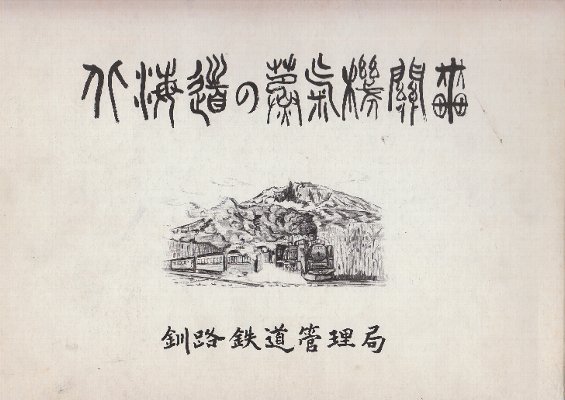 北海道の蒸気機關車
釧路鉄道管理局